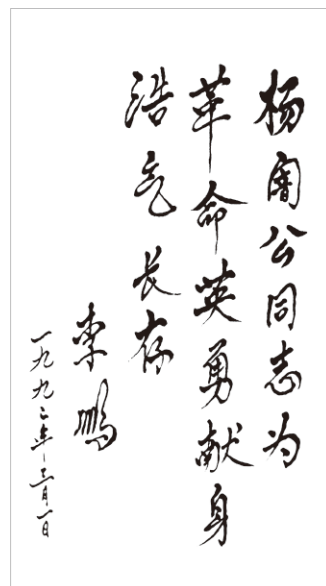 杨闇公同志为
革命英勇献身
浩气长存
李鹏
一九九二年十二月一日